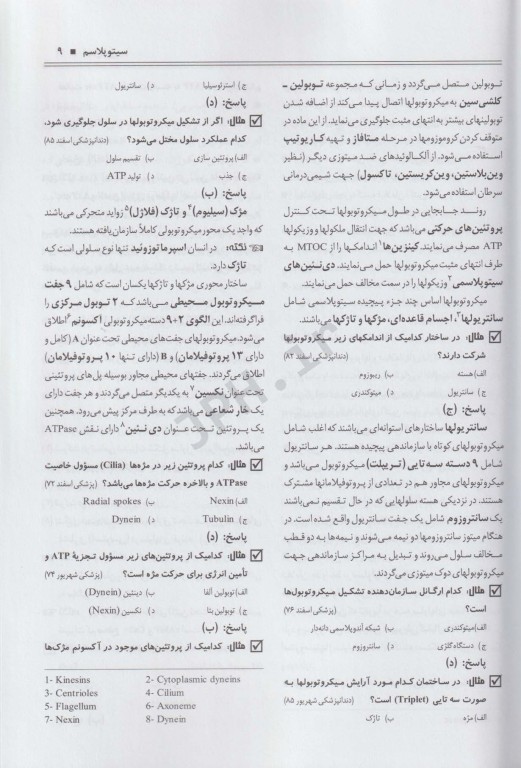 سیتوپلاسم ■ ۹
توبولین متصل می‌گردد و زمانی که مجموعه توبولین ـ
کلشی‌سین به میکروتوبولها اتصال پیدا می‌کند از اضافه شدن
توبولینهای بیشتر به انتهای مثبت جلوگیری می‌نماید. از این ماده در
متوقف کردن کروموزومها در مرحله متافاز و تهیه کاریوتیپ
استفاده می‌شود. از آلکالوئیدهای ضد میتوزی دیگر (نظیر
وین‌بلاستین، وین‌کریستین، تاکسول) جهت شیمی‌درمانی
سرطان استفاده می‌شود.
روند جابجایی در طول میکروتوبولها تحت کنترل
پروتئین‌های حرکتی می‌باشد که جهت انتقال ملکولها و وزیکولها
ATP مصرف می‌نمایند. کینزین‌ها۱ اندامکها را از MTOC به
طرف انتهای مثبت میکروتوبولها حمل می‌نمایند. دی‌نئین‌های
سیتوپلاسمی۲ وزیکول‌ها را در سمت مخالف حمل می‌نمایند.
میکروتوبولها اساس چند جزء پیچیده سیتوپلاسمی شامل
سانتریولها۳، اجسام قاعده‌ای، مژکها و تاژکها می‌باشند.
مثال: در ساختار کدامیک از اندامکهای زیر میکروتوبولها
شرکت دارند؟ (دندانپزشکی اسفند ۸۲)
الف) هسته ب) ریبوزوم
ج) سانتریول د) میتوکندری
پاسخ: (ج)
سانتریولها ساختارهای استوانه‌ای می‌باشند که اغلب شامل
میکروتوبولهای کوتاه با سازماندهی پیچیده هستند. هر سانتریول
شامل ۹ دسته سه تایی (تریپلت) میکروتوبول می‌باشد و
میکروتوبولهای مجاور هم در تعدادی از پروتوفیلامانها مشترک
هستند. در نزدیکی هسته سلولهایی که در حال تقسیم نمی‌باشند
یک سانتروزوم شامل یک جفت سانتریول واقع شده است. در
هنگام میتوز سانتروزومها دو نیمه می‌شوند و نیمه‌ها به دو قطب
مخالف سلول می‌روند و تبدیل به مراکز سازماندهی جهت
میکروتوبولهای دوک میتوزی می‌گردند.
مثال: کدام ارگانل سازمان‌دهنده تشکیل میکروتوبول‌ها
است؟ (پزشکی اسفند ۷۶)
الف) میتوکندری ب) شبکه آندوپلاسمی دانه‌دار
ج) دستگاه گلژی د) سانتروزوم
پاسخ: (د)
مثال: در ساختمان کدام مورد آرایش میکروتوبولها به
صورت سه تایی (Triplet) است؟ (دندانپزشکی شهریور ۸۵)
الف) مژه ب) تاژک
ج) استرئوسیلیا د) سانتریول
پاسخ: (د)
مثال: اگر از تشکیل میکروتوبولها در سلول جلوگیری شود،
کدام عملکرد سلول مختل می‌شود؟ (دندانپزشکی اسفند ۸۵)
الف) پروتئین سازی ب) تقسیم سلول
ج) جذب د) تولید ATP
پاسخ: (ب)
مژک (سیلیوم)۴ و تاژک (فلاژل)۵ زواید متحرکی می‌باشند
که واجد یک محور میکروتوبولی کاملاً سازمان یافته هستند.
نکته: در انسان اسپرماتوزوئید تنها نوع سلولی است که
تاژک دارد.
ساختار محوری مژکها و تاژکها یکسان است که شامل ۹ جفت
میکروتوبول محیطی می‌باشد که ۲ توبول مرکزی را
فراگرفته‌اند. این الگوی ۲+۹ دسته میکروتوبولی آکسونم۶ اطلاق
می‌شود. میکروتوبولهای جفت‌های محیطی تحت عنوان A (کامل و
دارای ۱۳ پروتوفیلامان) و B (دارای تنها ۱۰ پروتوفیلامان)
اطلاق می‌گردند. جفتهای محیطی مجاور بوسیله پل‌های پروتئینی
تحت عنوان نکسین۷ به یکدیگر متصل می‌گردند و هر جفت دارای
یک خار شعاعی می‌باشد که به طرف مرکز پیش می‌رود. همچنین
یک پروتئین تحت عنوان دی نئین۸ دارای نقش ATPase
می‌باشد.
مثال: کدام پروتئین زیر در مژه‌ها (Cilia) مسؤول خاصیت
ATPase و بالاخره حرکت مژه‌ها می‌باشد؟ (پزشکی اسفند ۷۲)
الف) Nexin ب) Radial spokes
ج) Tubulin د) Dynein
پاسخ: (د)
مثال: کدامیک از پروتئین‌های زیر مسؤول تجزیهٔ ATP و
تأمین انرژی برای حرکت مژه است؟ (پزشکی شهریور ۷۴)
الف) توبولین آلفا ب) دینئین (Dynein)
ج) توبولین بتا د) نکسین (Nexin)
پاسخ: (ب)
مثال: کدامیک از پروتئین‌های موجود در آکسونم مژک‌ها
1- Kinesins 2- Cytoplasmic dyneins
3- Centrioles 4- Cilium
5- Flagellum 6- Axoneme
7- Nexin 8- Dynein